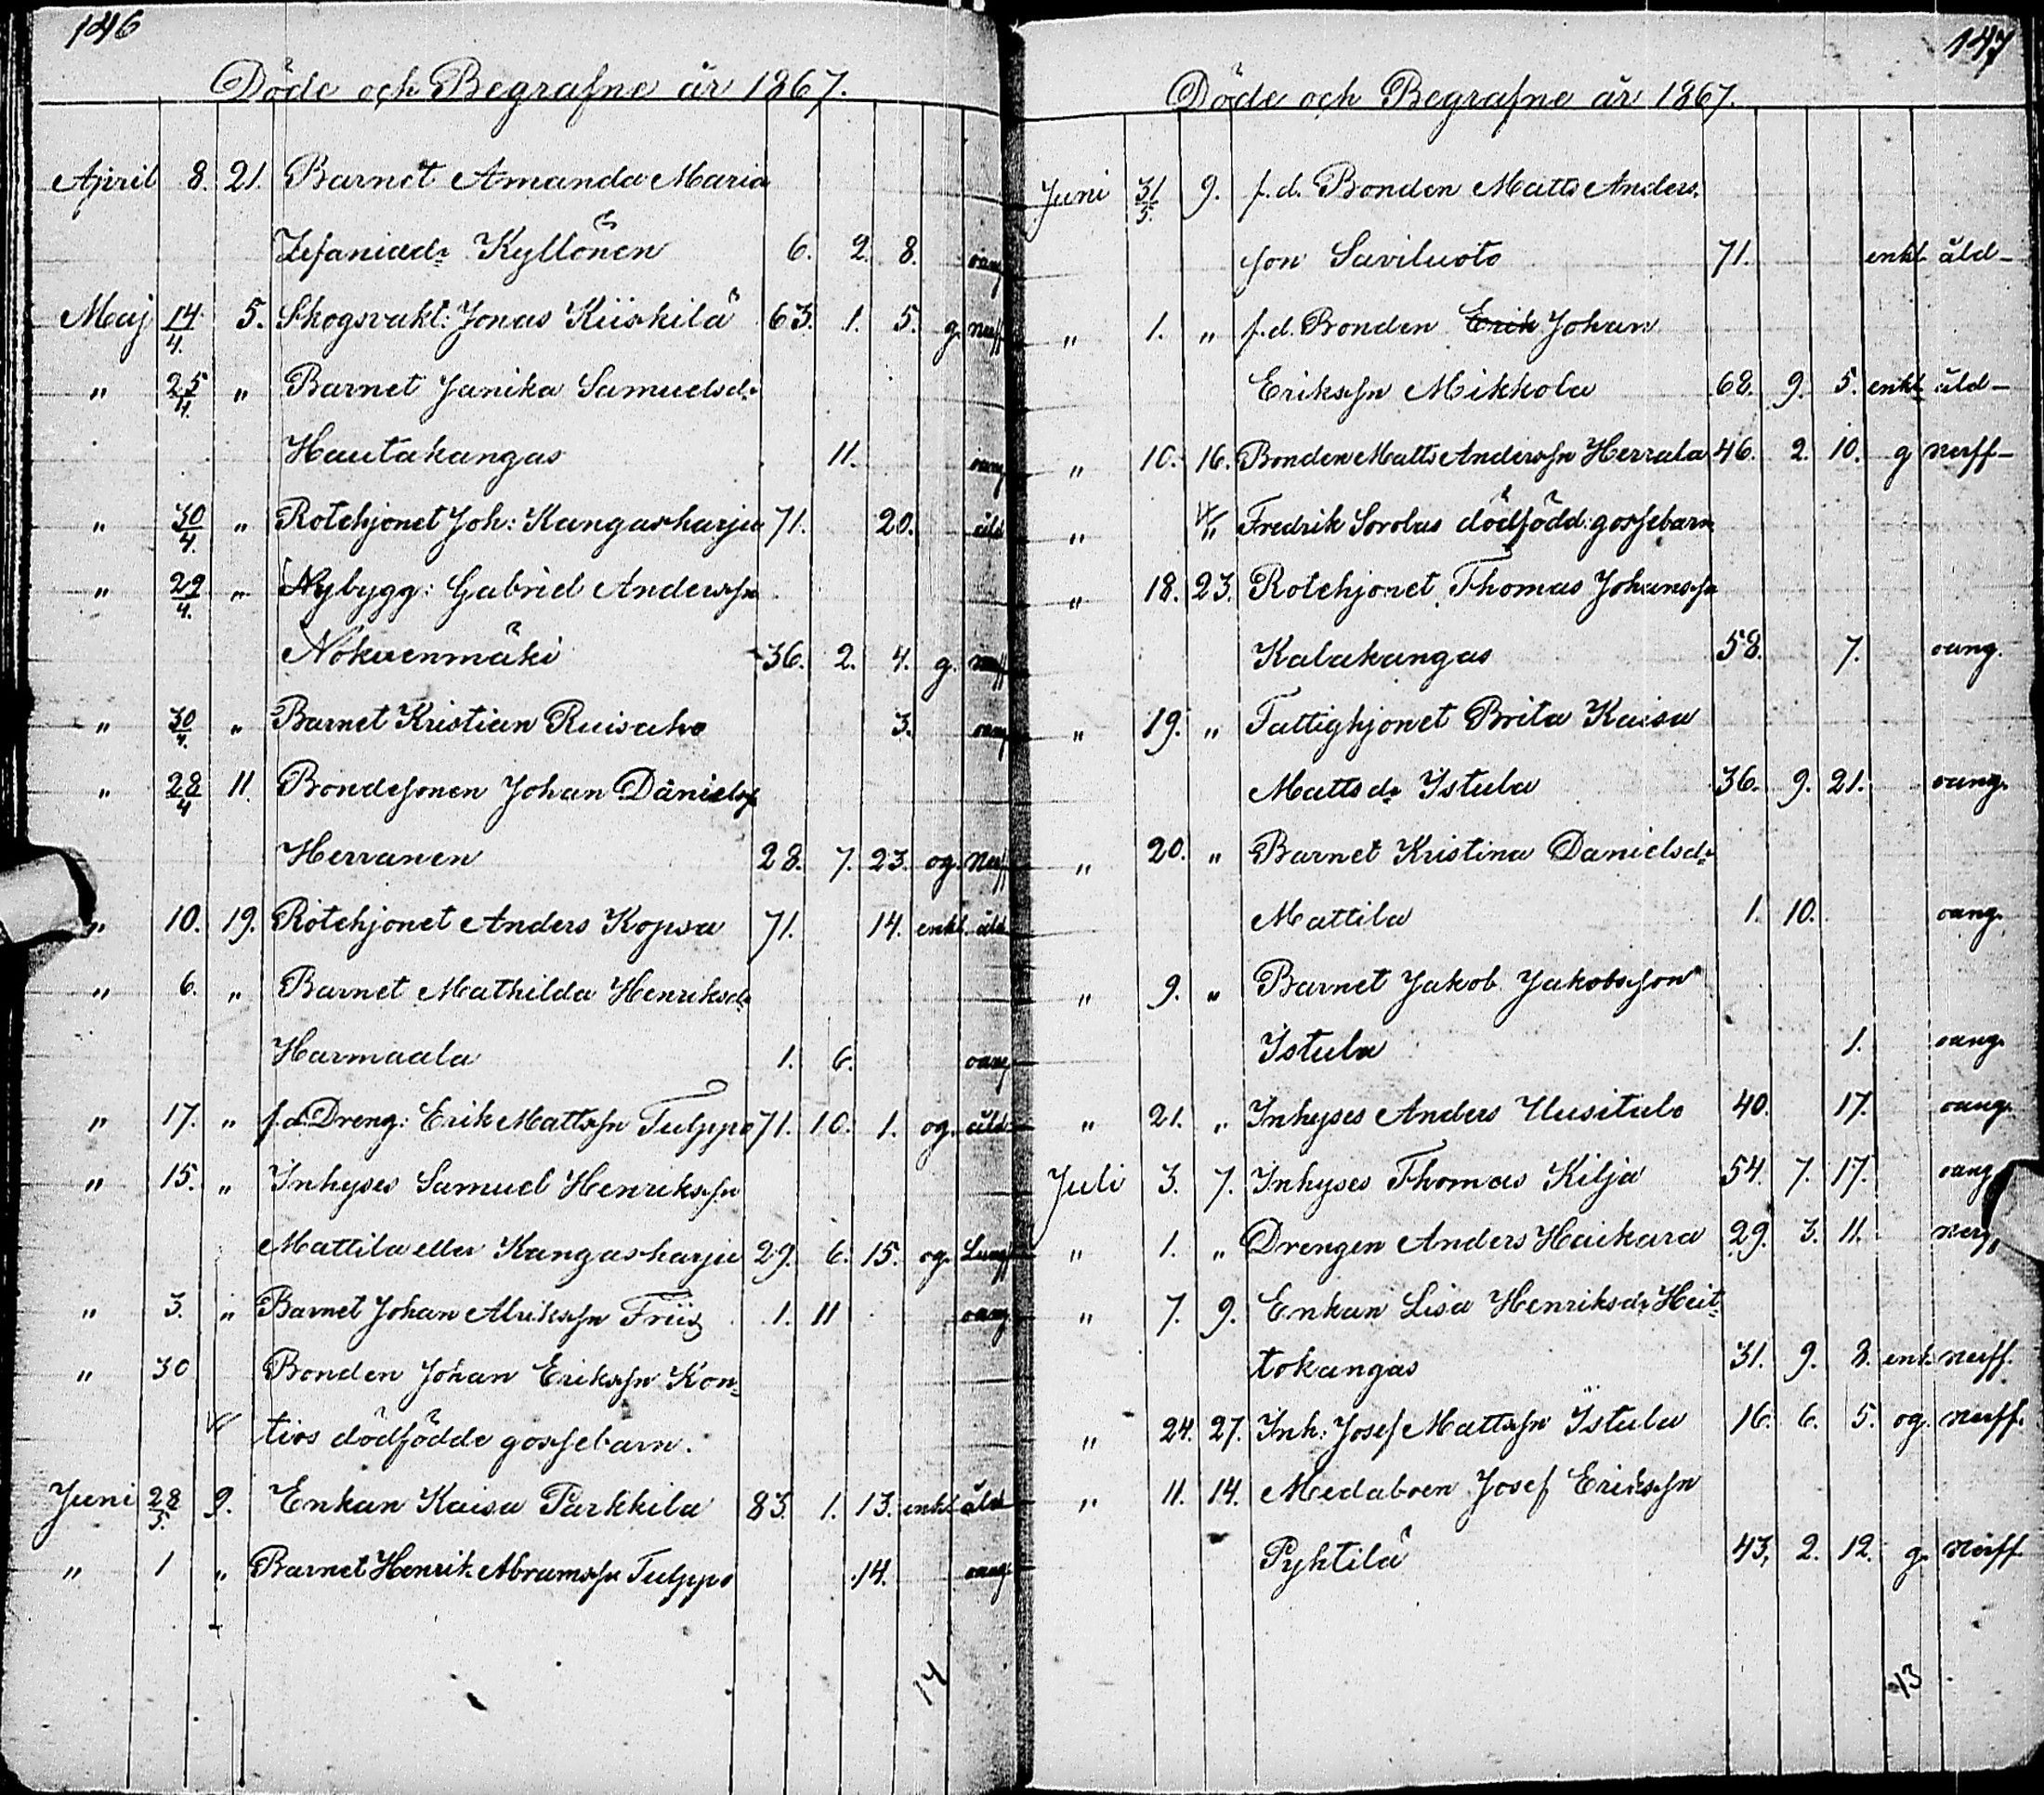 146
Döde och Begrafne år 1867.
April 8. 21. Barnet Amanda Maria
Zefaniadr Kyllönen 6. 2. 8. oang
Maj 14/4. 5. Skogsvakt: Jonas Kiiskilä 63. 1. 5. g. nerff
" 25/4. " Barnet Janika Samuelsdr
Hautakangas 11. oang
" 30/4. " Rotehjonet Joh: Kangasharju 71. 20. åld
" 29/4. " Nybygg: Gabriel Anderssn
Nokuenmäki 36. 2. 4. g. nerff
" 30/4. " Barnet Kristian Ruisaho 3. oang
" 28/4 11. Bondesonen Johan Danielss
Herranen 28. 7. 23. og. Nerff
" 10. 19. Rotehjonet Anders Kopsa 71. 14. enkl. åld
" 6. " Barnet Mathilda Henriksdr
Harmaala 1. 6. oang
" 17. " f.d. Dreng: Erik Mattssn Tulppo 71. 10. 1. og. åld
" 15. " Inhyses Samuel Henrikssn
Mattila eller Kangasharju 29. 6. 15. og. Lungf
" 3. " Barnet Johan Alrikssn Friis 1. 11 oang
" 30 Bonden Johan Erikssn Kon-
tios dödfödde gossebarn.
Juni 28/5. 9. Enkan Kaisa Parkkila 83. 1. 13. enkl åld
" 1 " Barnet Henrik Abramssn Tulppo 14. oang.
14
147
Döde och Begrafne år 1867.
Juni 31/5. 9. f.d. Bonden Matts Anders-
son Saviluoto 71. enkl. åld-
" 1. " f.d. Bonden Erik Johan
Erikssn Mikkola 68. 9. 5. enkl åld-
" 10. 16. Bonden Matts Anderssn Herrala 46. 2. 10. g nerff-
" Fredrik Sorolas dödfödd: gossebarn
" 18. 23. Rotehjonet Thomas Johanssn
Kalakangas 58. 7. oang.
" 19. " Fattighjonet Brita Kaisa
Mattsdr Istula 36. 9. 21. oang.
" 20. " Barnet Kristina Danielsdr
Mattila 1. 10. oang.
" 9. " Barnet Jakob Jakobsson
Istula 1. oang.
" 21. " Inhyses Anders Uusitalo 40. 17. oang.
Juli 3. 7. Inhyses Thomas Kilja 54. 7. 17. oang
" 1. " Drengen Anders Haikara 29. 3. 11. nerf
" 7. 9. Enkan Lisa Henriksdr Heit-
tokangas 31. 9. 8. enk. nerff.
" 24. 27. Inh: Josef Mattssn Istula 16. 6. 5. og. nerff.
" 11. 14. Medaboen Josef Erikssn
Pyhtilä 43. 2. 12. g. nerff
13